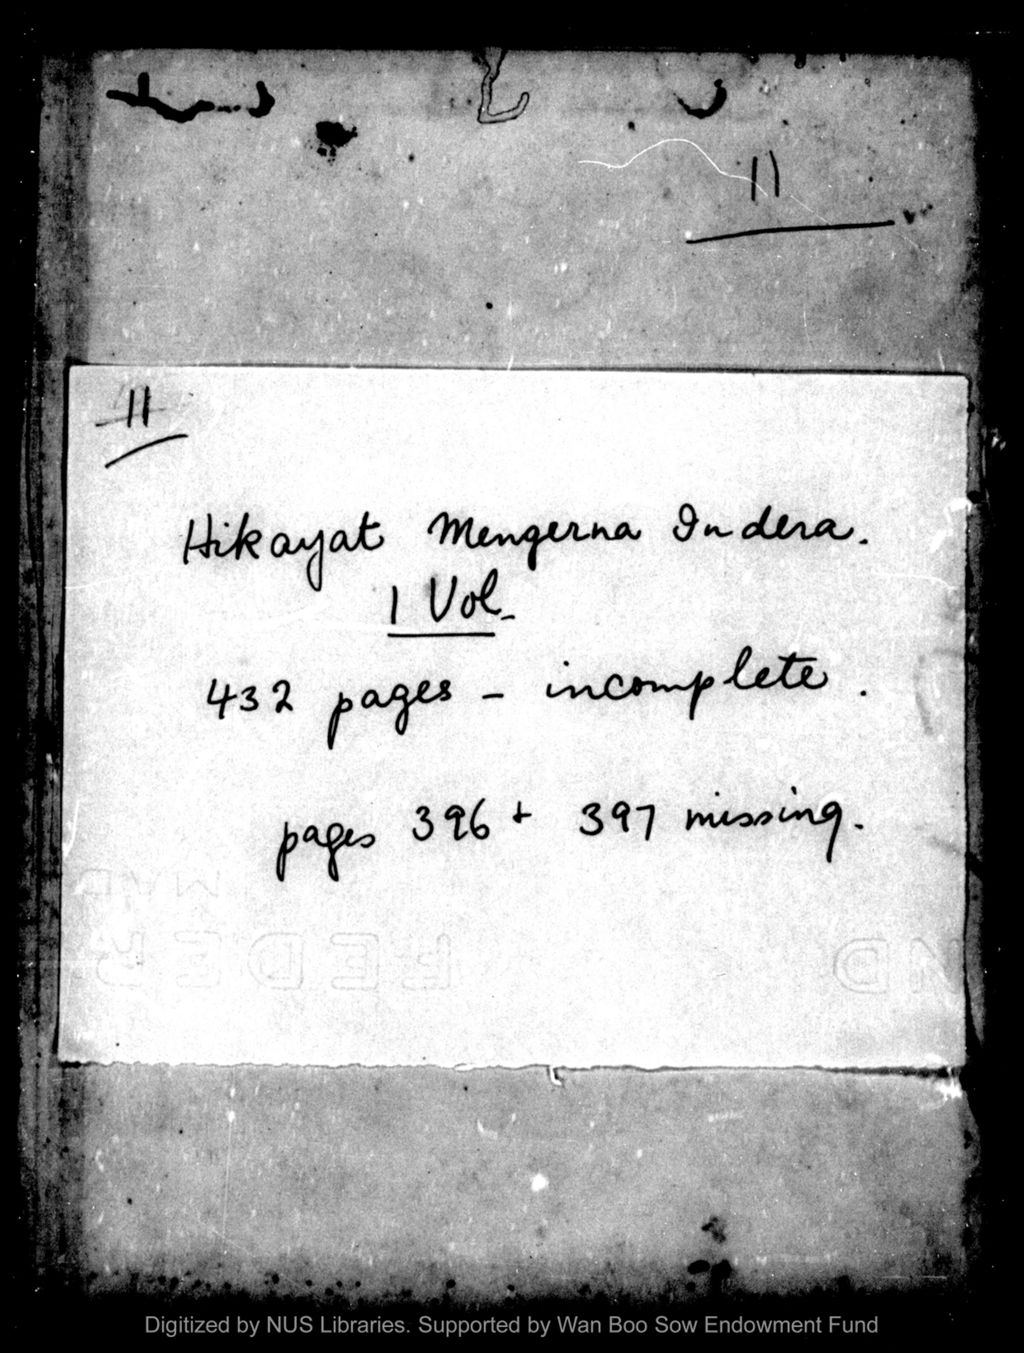 11
11
Hikayat Mengerna Indera.
1 Vol.
432 pages - incomplete.
pages 396 + 397 missing.
Digitized by NUS Libraries. Supported by Wan Boo Sow Endowment Fund